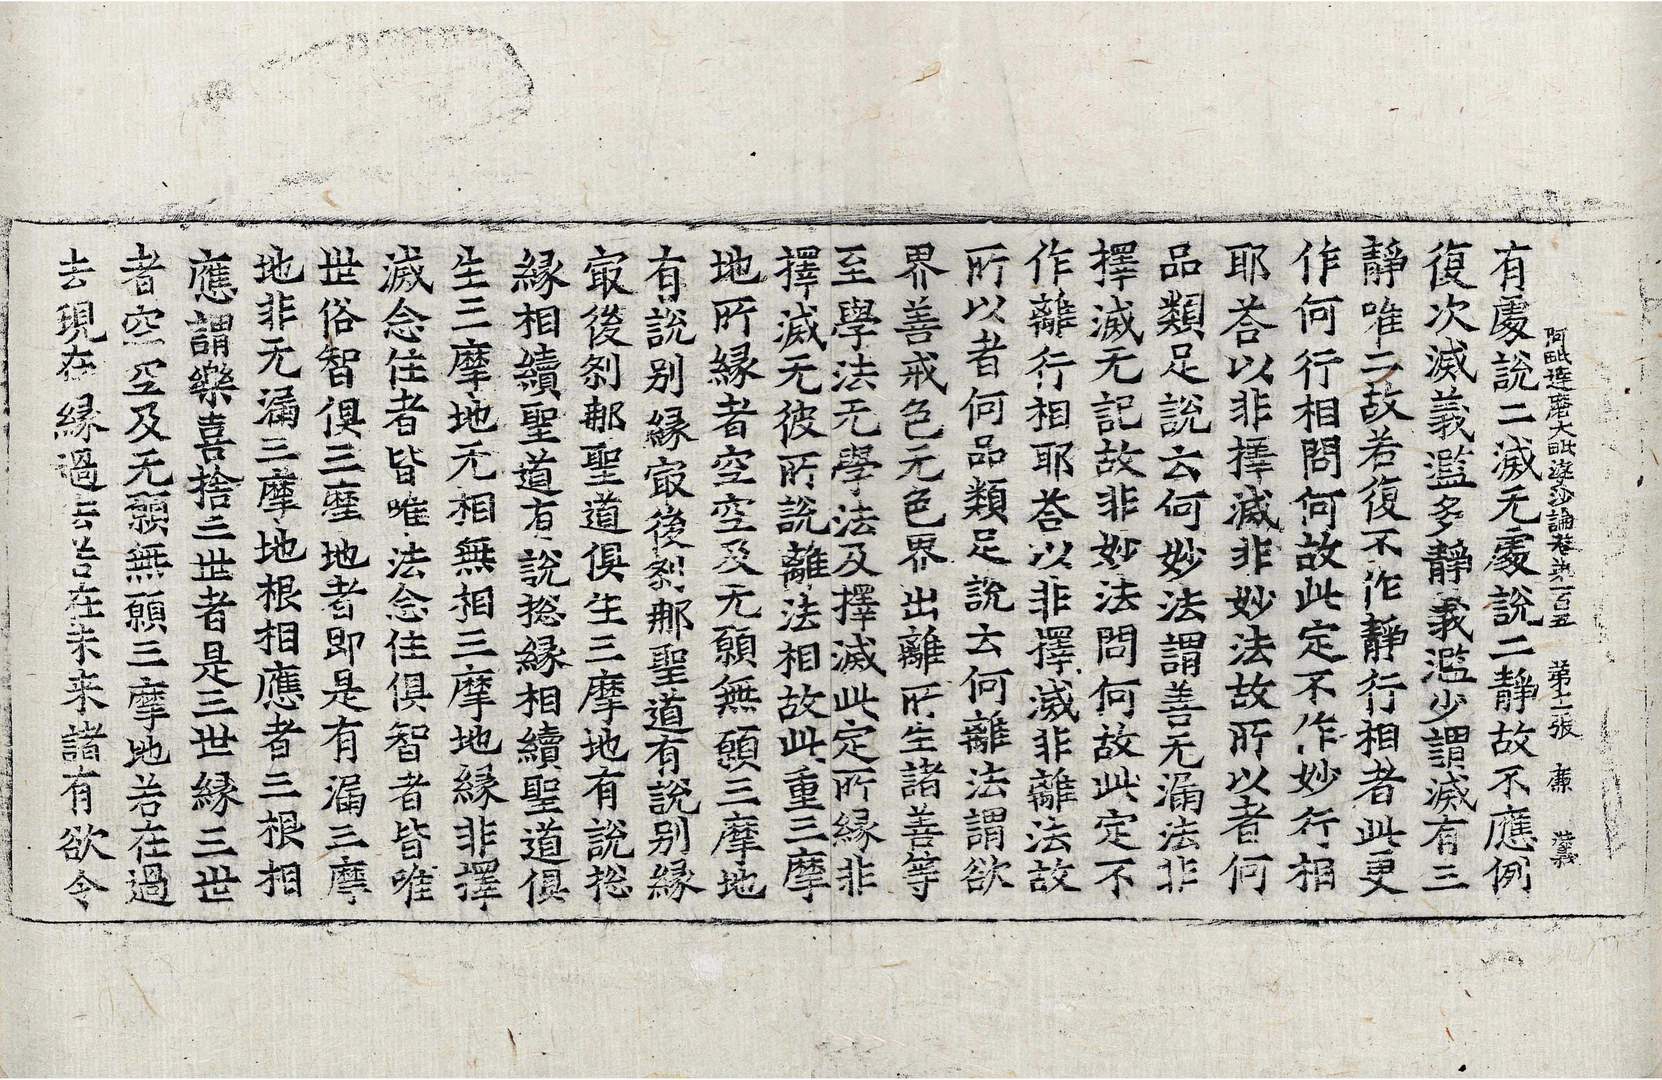 阿毗達磨大毗婆沙論卷第一百五 第十二張 廉
有處說二滅无處說二靜故不應例
復次滅義濫多靜義濫少謂滅有三
靜唯二故若復不作靜行相者此更
作何行相問何故此定不作妙行相
耶荅以非擇滅非妙法故所以者何
品類足說云何妙法謂善无漏法非
擇滅无記故非妙法問何故此定不
作離行相耶荅以非擇滅非離法故
所以者何品類足說云何離法謂欲
界善戒色无色界出離所生諸善等
至學法无學法及擇滅此定所縁非
擇滅无彼所說離法相故此重三摩
地所縁者空空及无願無願三摩地
有說别縁㝡後剎那聖道有說别縁
㝡後剎那聖道俱生三摩地有說捴
縁相續聖道有說捴縁相續聖道俱
生三摩地无相無相三摩地縁非擇
滅念住者皆唯法念住俱智者皆唯
世俗智俱三摩地者即是有漏三摩
地非无漏三摩地根相應者三根相
應謂樂喜捨三世者是三世縁三世
者空空及无願無願三摩地若在過
去現在縁過去若在未来諸有欲令